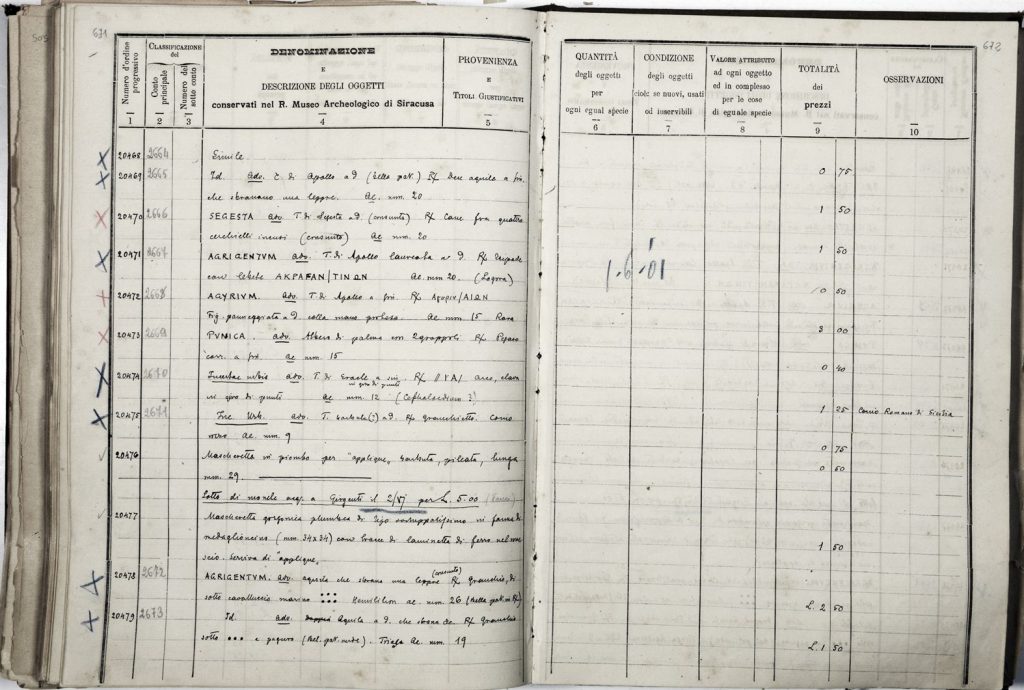 671
Numero d'ordine progressivo
Classificazione del
Conto principale
Numero del sotto conto
DENOMINAZIONE
E
DESCRIZIONE DEGLI OGGETTI
conservati nel R. Museo Archeologico di Siracusa
PROVENIENZA
E
TITOLI GIUSTIFICATIVI
1 2 3 4 5
20468 2664 Simile
20469 2665 Id. adv. T. di Apollo a d (bella pat.) R/ Due aquile a sin.
che sbranano una lepre. Ae. mm. 20
20470 2666 SEGESTA adv. T. di Segesta a d. (consunto) R/ Cane fra quattro
cerchielli incusi (consunto) Ae mm. 20
20471 2667 AGRIGENTVM adv. T. di Apollo laureata a d. R/ Tripode
con lebete AKPAΓAN/TINΩN Ae. mm 20. (Logora)
20472 2668 AGYRIVM. adv. T di Apollo a sin. R/
Fig. panneggiata a d. colla mano protesa. Ae mm. 15 Rara
20473 2669 PVNICA. adv. Albero di palma con 2 grappoli R/ Pegaso
corr. a sin. Ae mm. 15
20474 2670 Incertae urbis adv. T. di Eracle a sin. R/ arco, clava
in giro di punti Ae mm. 12 (Cephaloedium ?)
20475 2671 Inc. Urb. adv. T. barbata (?) a d. R/ granchietto. Conio
Ae. mm. 9
20476 Mascheretta in piombo per "applique", barbuta, pileata, lunga
mm. 29.
Lotto di monete acq. a Girgenti il 2/VI per L. 5.00
20477 Mascheretta gorgonica plumbea di tipo sviluppatissimo in forma di
medaglioncino (mm. 34x34) con tracce di laminetta di ferro nel rove
scio. Serviva di "applique".
20478 2672 AGRIGENTVM. adv. aquila che sbrana una lepre (consunto) R/ Granchio, di
sotto cavalluccio marino Hemilitron ae. mm. 26 (bella pat. in R/)
20479 2673 Id. adv. Aquila a d. che sbrana R/ Granchio
sotto e paguro (bel. pat. verde). Trias Ae. mm. 19
672
QUANTITÀ
degli oggetti
per
ogni egual specie
CONDIZIONE
degli oggetti
cioè: se nuovi, usati
od inservibili
VALORE ATTRIBUITO
ad ogni oggetto
ed in complesso
per le cose
di eguale specie
TOTALITÀ
dei
prezzi
OSSERVAZIONI
6 7 8 9 10
0 75
1 50
1 50
1-6-01
0 50
3 00
0 40
1 25 Conio Romano di Sicilia
0 75
0 50
1 50
L. 2 50
L. 1 50